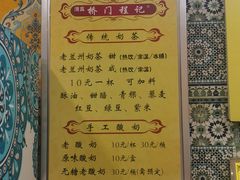 桥门程记
传统奶茶
老兰州奶茶 甜(热饮/常温/冰桶)
老兰州奶茶 咸(热饮/常温)
10元一杯 可加料
酥油、甜醅、青稞、藜麦
红豆、绿豆、紫米
手工酸奶
老酸奶 10元/杯 30元/桶
原味酸奶 10元/盒
无糖老酸奶 30元/桶(需预定)